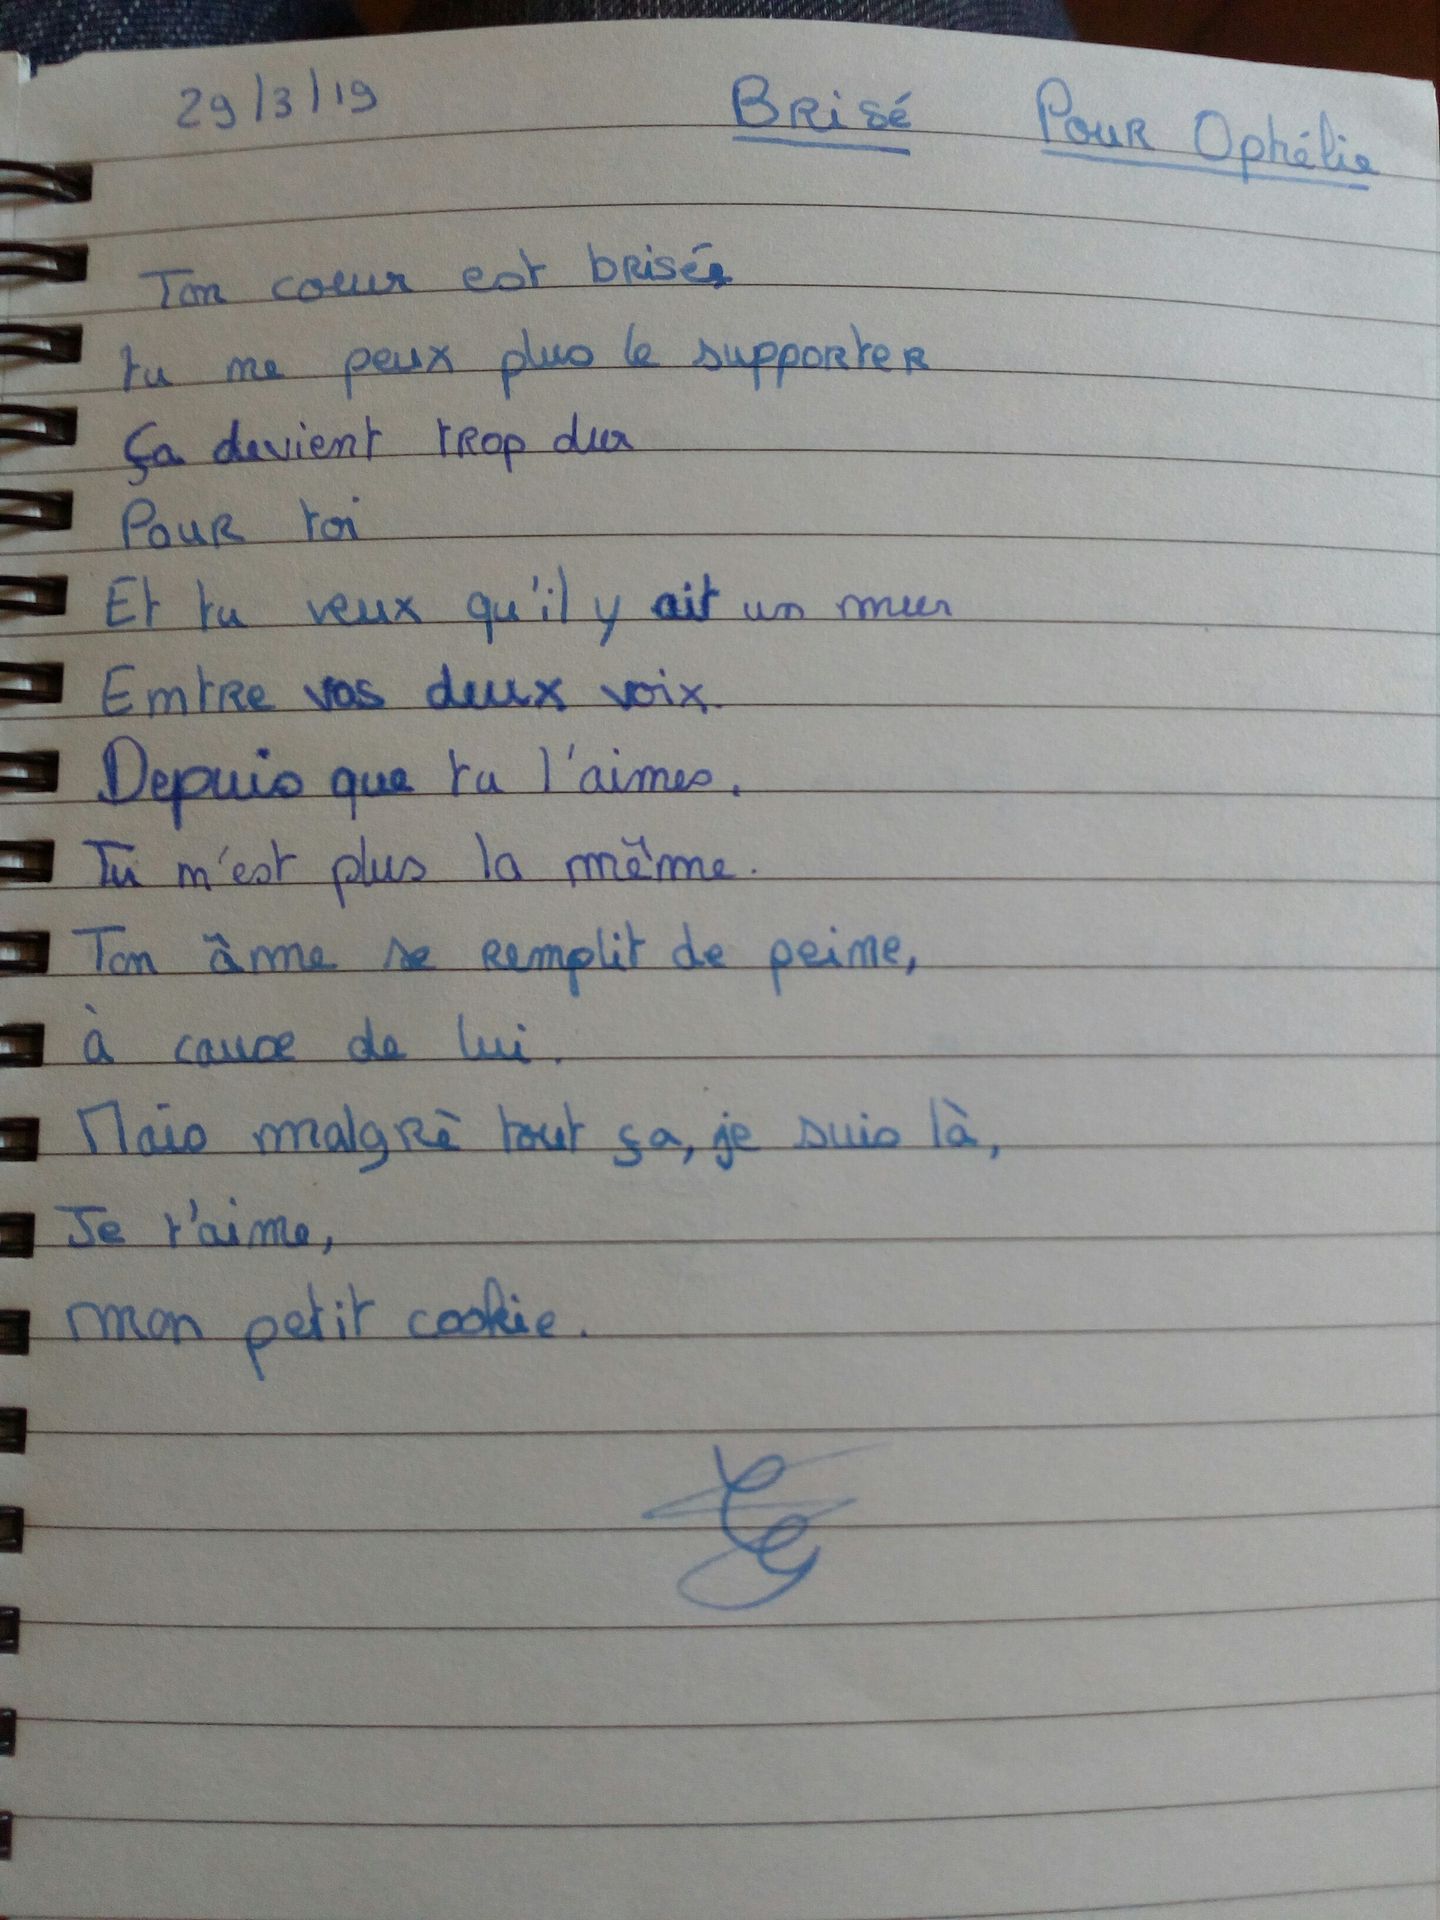 29/3/19 Brisé Pour Ophélie
Ton coeur est brisé,
tu ne peux plus le supporter
Ça devient trop dur
Pour toi
Et tu veux qu'il y ait un mur
Entre vos deux voix.
Depuis que tu l'aimes,
Tu n'est plus la même.
Ton âme se remplit de peine,
à cause de lui.
Mais malgrè tout ça, je suis là,
Je t'aime,
mon petit cookie.